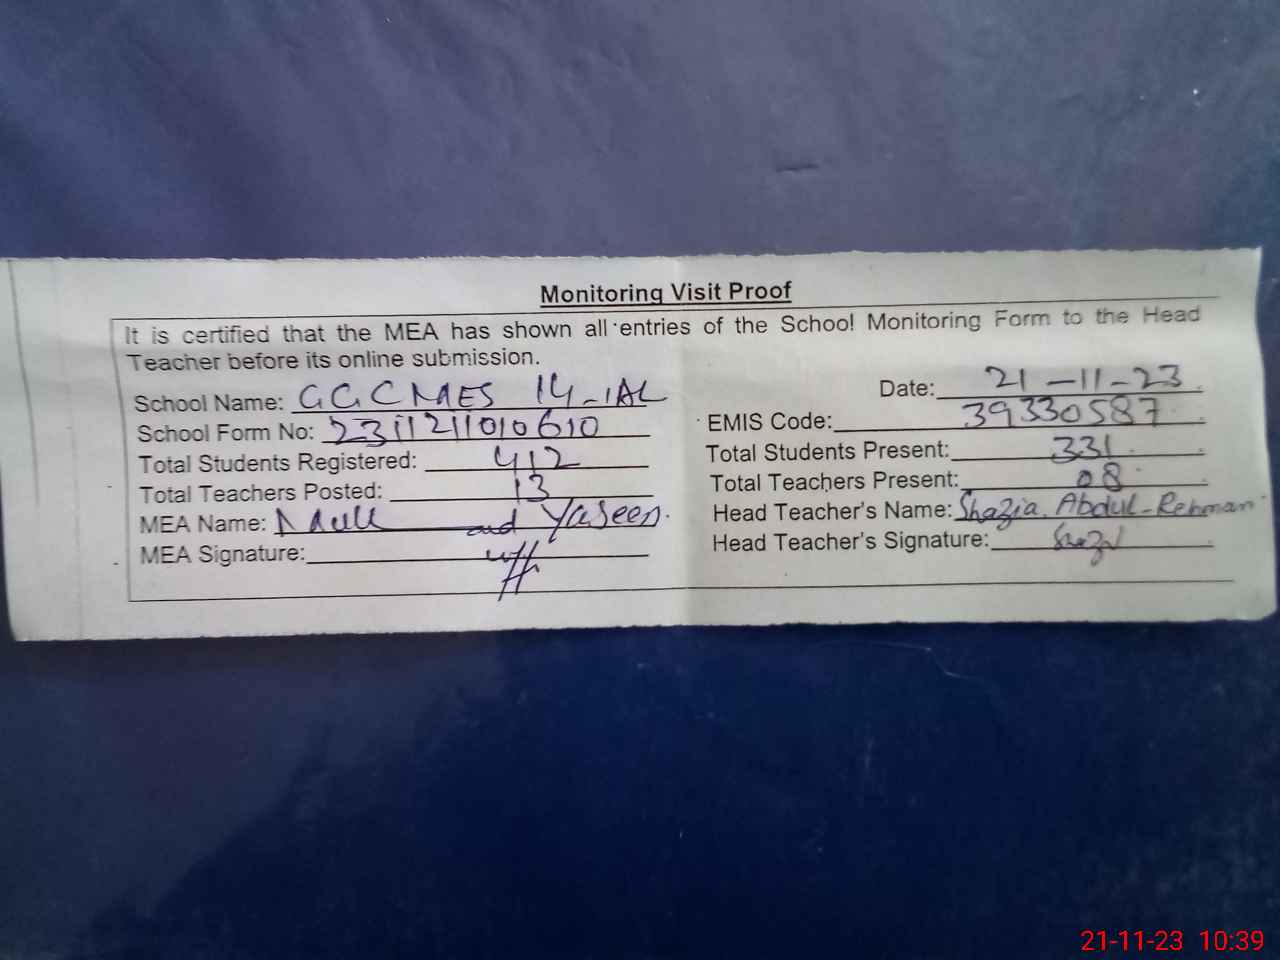 Monitoring Visit Proof
It is certified that the MEA has shown all entries of the School Monitoring Form to the Head
Teacher before its online submission.
School Name: GGCMES 14-1AL
Date: 21-11-23
School Form No: 2311211010610
EMIS Code: 39330587
Total Students Registered: 412
Total Students Present: 331
Total Teachers Posted: 13
Total Teachers Present: 08
MEA Name: Yaseen
Head Teacher's Name: Shazia Abdul-Rehman
MEA Signature:
Head Teacher's Signature:
21-11-23 10:39